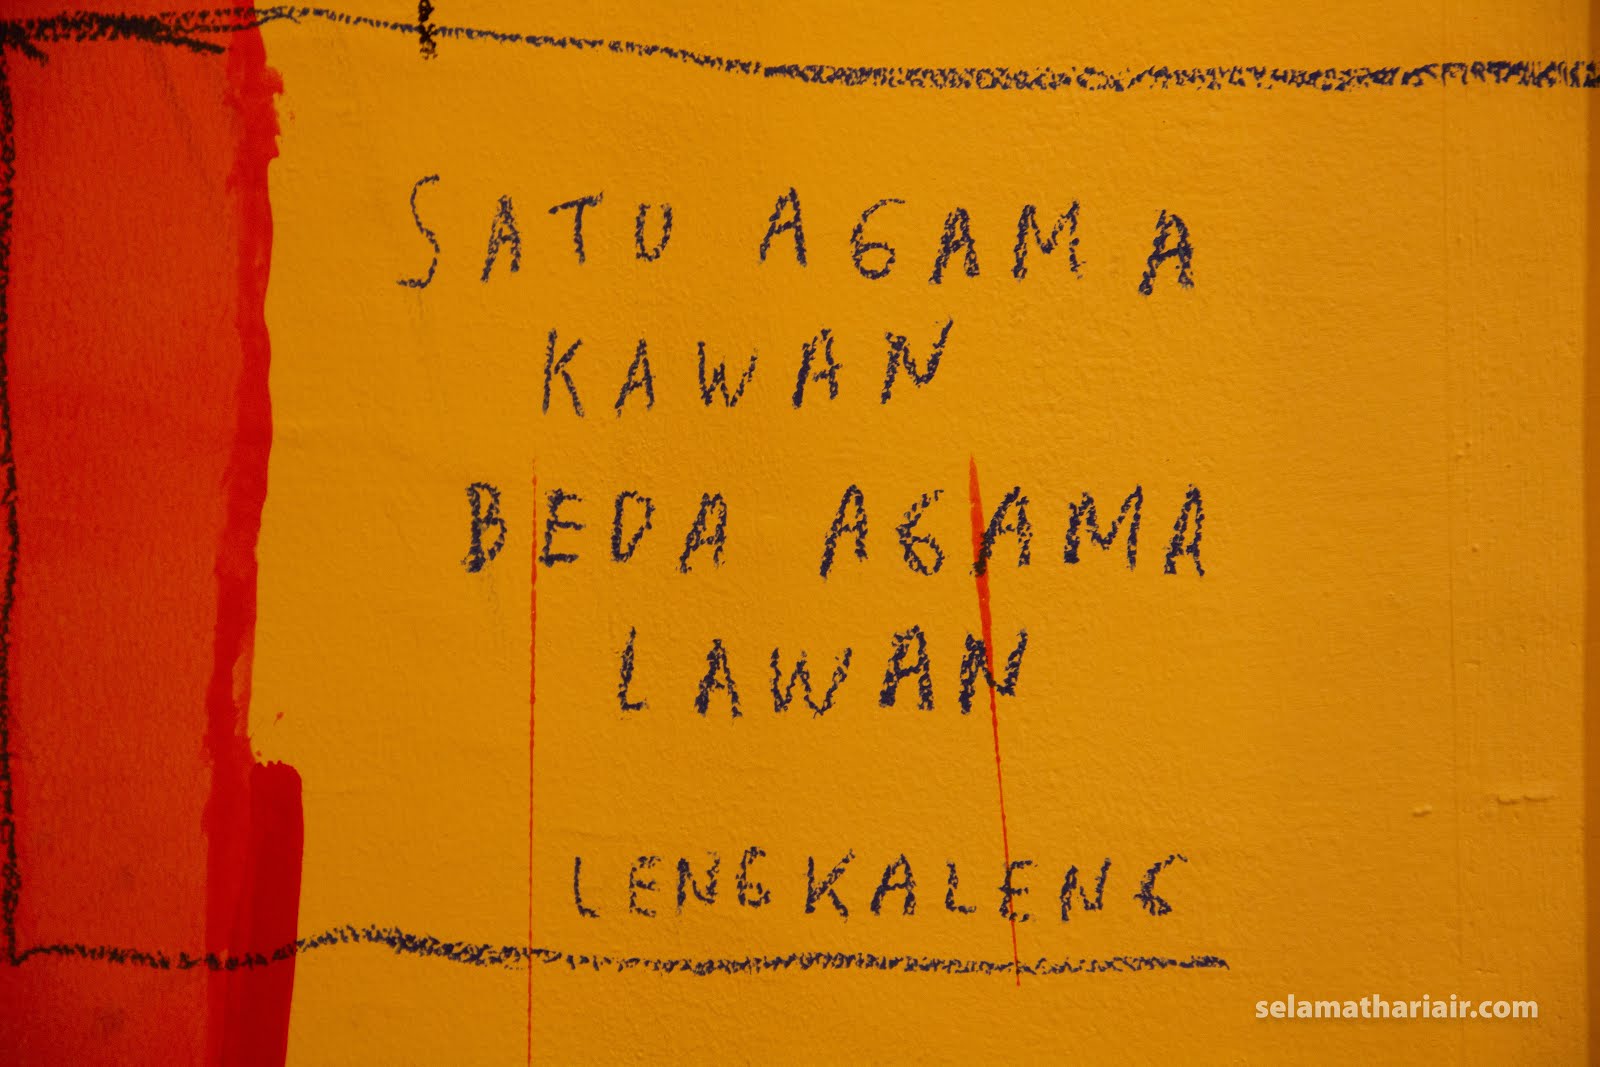 SATU AGAMA
KAWAN
BEDA AGAMA
LAWAN
LENGKALENG
selamathariair.com